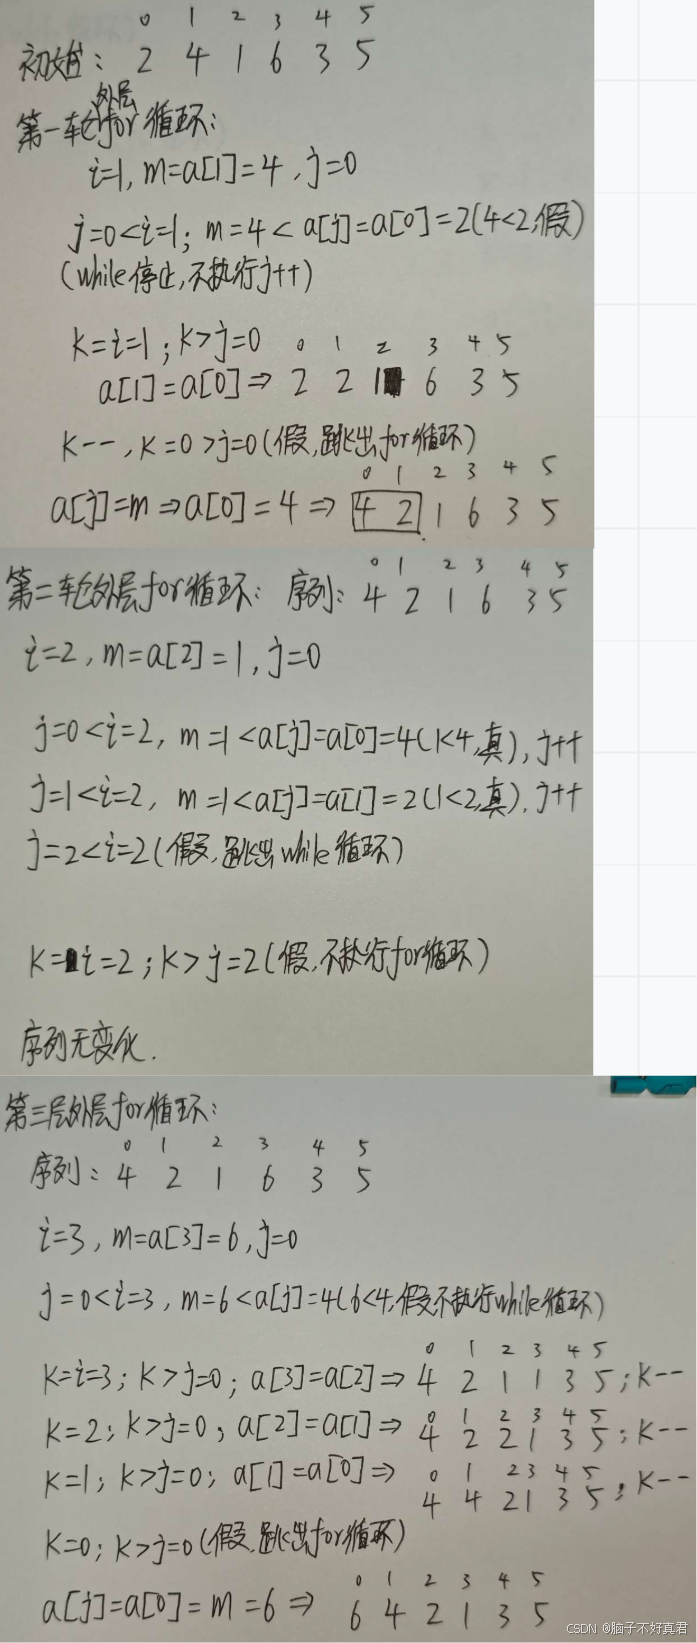 0 1 2 3 4 5
初始: 2 4 1 6 3 5
第一轮外层for循环:
i=1, m=a[1]=4, j=0
j=0<i=1; m=4<a[j]=a[0]=2(4<2,假)
(while停止,不执行j++)
k=i=1; k>j=0
0 1 2 3 4 5
a[1]=a[0]⇒ 2 2 1 6 3 5
k--, k=0>j=0(假,跳出for循环)
0 1 2 3 4 5
a[j]=m⇒a[0]=4⇒ 4 2 1 6 3 5
0 1 2 3 4 5
第二轮外层for循环: 序列: 4 2 1 6 3 5
i=2, m=a[2]=1, j=0
j=0<i=2, m=1<a[j]=a[0]=4(1<4,真), j++
j=1<i=2, m=1<a[j]=a[1]=2(1<2,真), j++
j=2<i=2(假,跳出while循环)
k=i=2; k>j=2(假,不执行for循环)
序列无变化.
第三层外层for循环:
0 1 2 3 4 5
序列: 4 2 1 6 3 5
i=3, m=a[3]=6, j=0
j=0<i=3, m=6<a[j]=4(6<4,假不执行while循环)
0 1 2 3 4 5
k=i=3; k>j=0; a[3]=a[2]⇒ 4 2 1 1 3 5; k--
0 1 2 3 4 5
k=2; k>j=0; a[2]=a[1]⇒ 4 2 2 1 3 5; k--
k=1; k>j=0; a[1]=a[0]⇒ 0 1 2 3 4 5
4 4 2 1 3 5; k--
k=0; k>j=0(假,跳出for循环)
0 1 2 3 4 5
a[j]=a[0]=m=6⇒ 6 4 2 1 3 5
CSDN @脑子不好真君